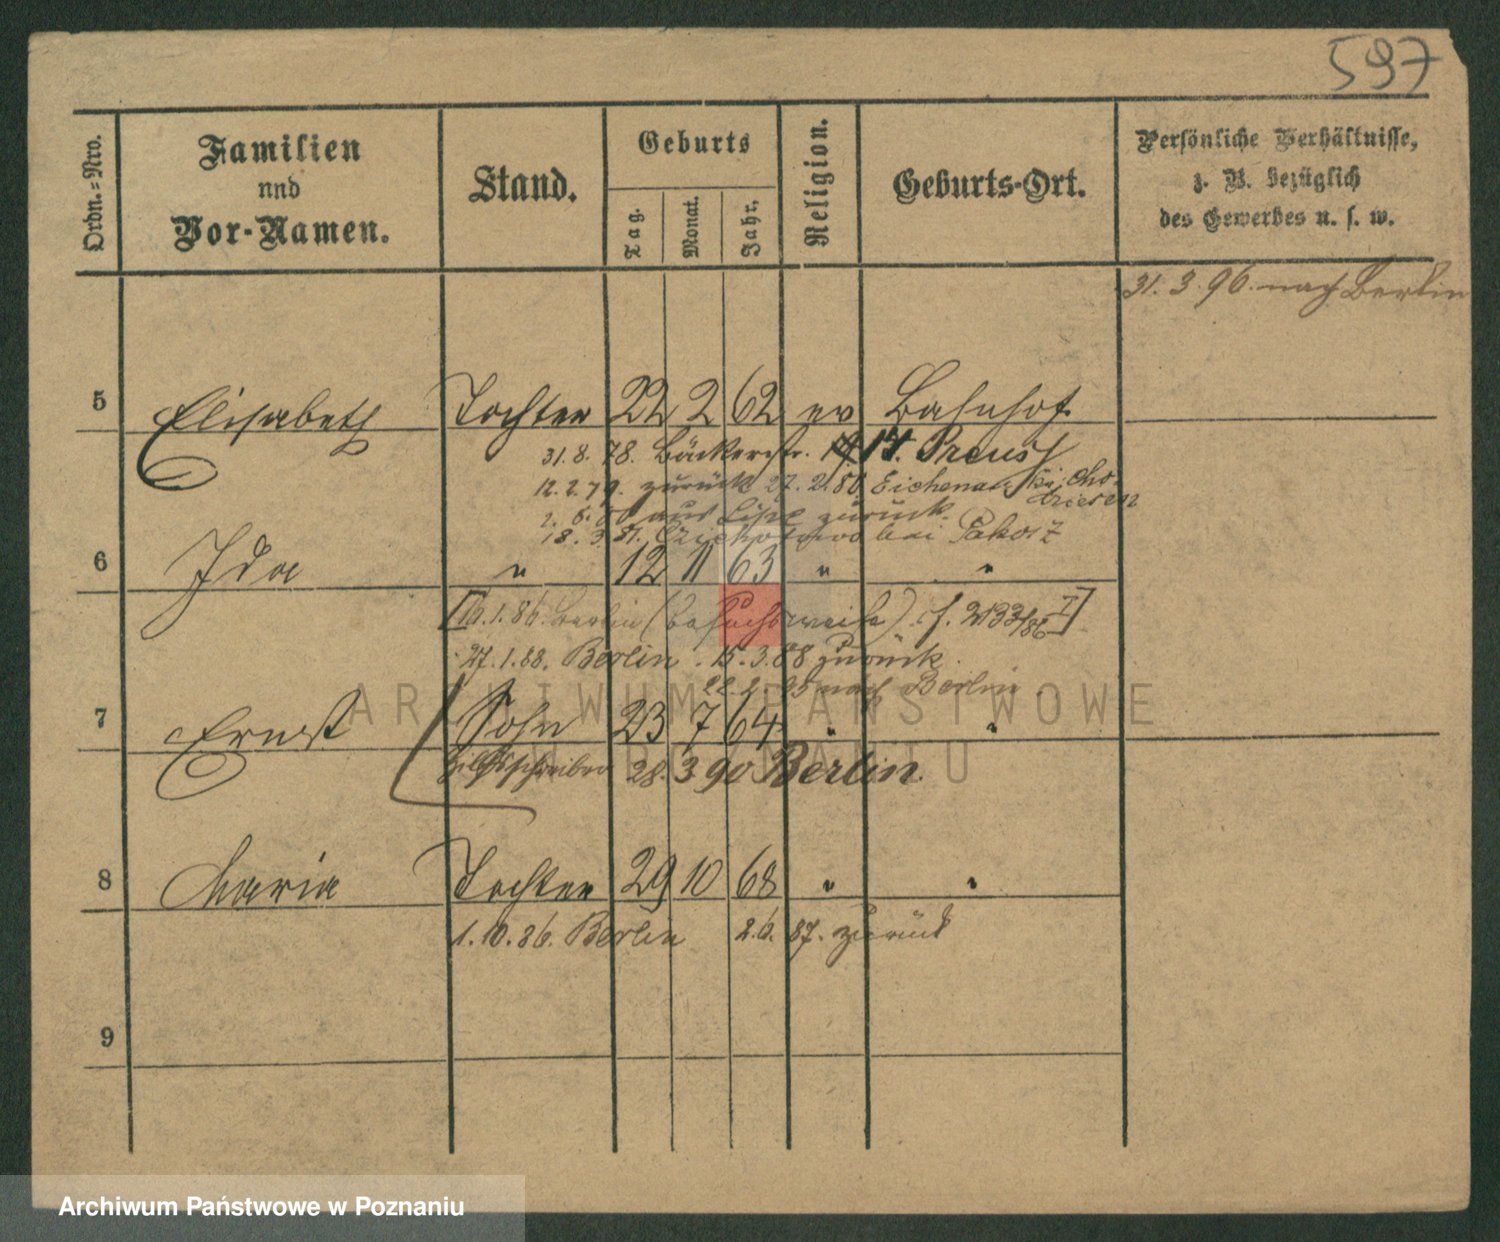 597
Ordn.=Nro.
Familien
und
Vor-Namen.
Stand.
Geburts
Tag.
Monat.
Jahr.
Religion.
Geburts-Ort.
Persönliche Verhältnisse,
z. B. bezüglich
des Gewerbes u. s. w.
31. 3. 96. nach Berlin
5 Elisabeth Tochter 22 2 62 ev Bahnhof
31. 8. 78. Bäckerstr. 17. Preus
12. 2. 79. zurück 27. 2. 80 Eichenau bei
zurück.
18. 3. 81. bei Pakosz
6 Ida " 12 11 63 " "
[16.1.86. Berlin (besuchsweise) f. 2133/86 I]
27. 1. 88. Berlin. 15. 3. 88 zurück.
nach Berlin
7 Ernst Sohn 23 7 64 " "
Hilfsschreiber 28. 3 90 Berlin.
8 Maria Tochter 29 10 68 " "
1. 10. 86. Berlin 2. 6. 87. zurück
9
ARCHIWUM PAŃSTWOWE
W POZNANIU
Archiwum Państwowe w Poznaniu